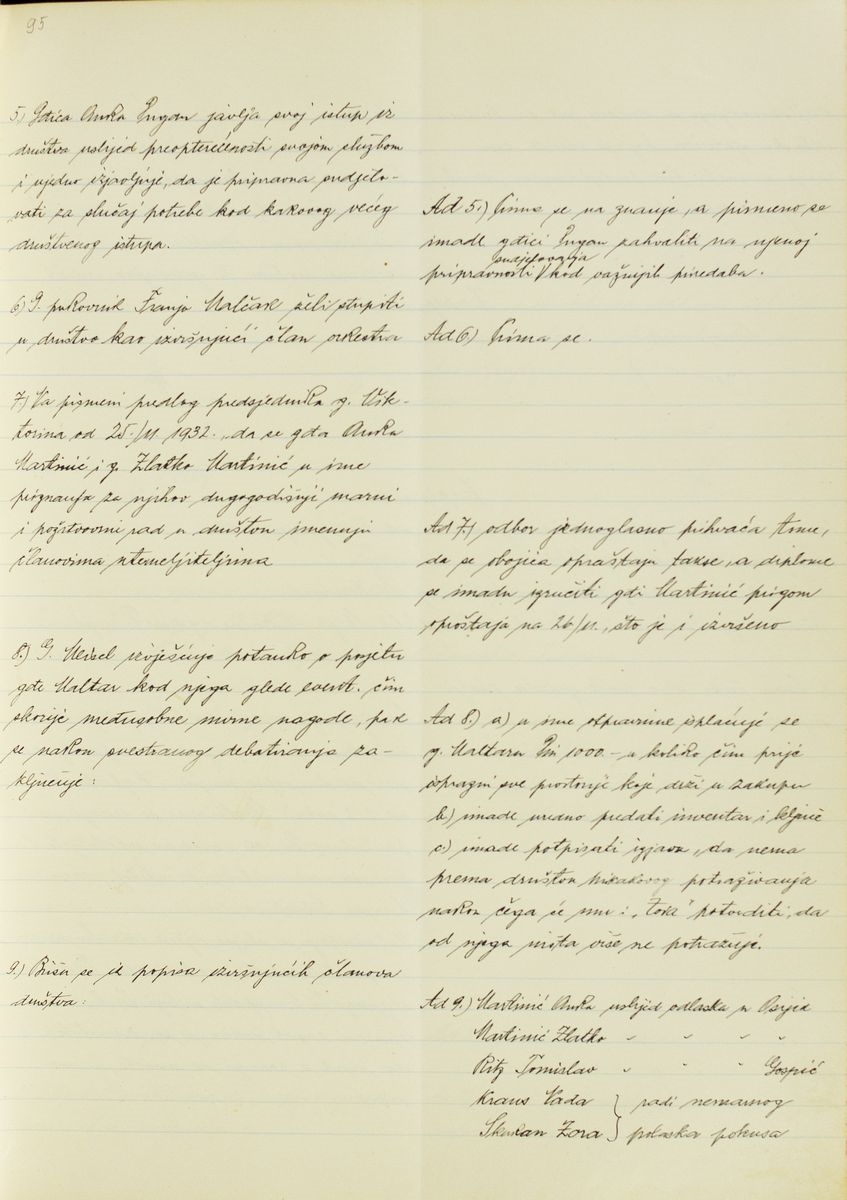 95
5.) Gđica Anka Prugar javlja svoj istup iz
društva uslijed preopterećenosti svojom službom
i ujedno izjavljuje, da je pripravna sudjelo-
vati za slučaj potrebe kod kakovog većeg
društvenog istupa.
6.) G. pukovnik Franjo Malčak želi stupiti
u društvo kao izvršujući član orkestra
7.) Na pismeni predlog predsjednika g. Vik-
torina od 25./11. 1932. „da se gđa Anka
Martinić i g. Zlatko Martinić u ime
priznanja za njihov dugogodišnji marni
i požrtvovni rad u društvu imenuju
članovima utemeljiteljima
8.) G. Meisel izvješćuje potanko o posjetu
gđe Maltar kod njega glede event. čim
skorije međusobne mirne nagode, pak
se nakon svestranog debatiranja za-
ključuje:
9.) Brišu se iz popisa izvršujućih članova
društva:
Ad 5.) Prima se na znanje, a pismeno se
imade gđici zahvaliti na njenoj
sudjelovanja
pripravnosti kod važnijih priredaba.
Ad 6.) Prima se.
Ad 7.) odbor jednoglasno prihvaća time,
da se obojica opraštaju takse, a diplome
se imadu izručiti gđi Martinić prigom
oproštaja na 26/11., što je i izvršeno
Ad 8.) a) u ime otpremnine isplaćuje se
g. Maltaru Din 1000.– u koliko čim prije
isprazni sve prostorije koje drži u zakupu
b) imade uredno predati inventar i ključe
c) imade potpisati izjavu, da nema
prema društvu nikakovog potraživanja
nakon čega će mu i „ " potvrditi, da
od njega ništa više ne potražuje.
Ad 9.) Martinić Anka uslijed odlaska u Osijek
Martinić Zlatko " " " "
Ritz Tomislav " " " Gospić
Kraus Nada } radi nemarnog
Skukan Zora } polaska pokusa